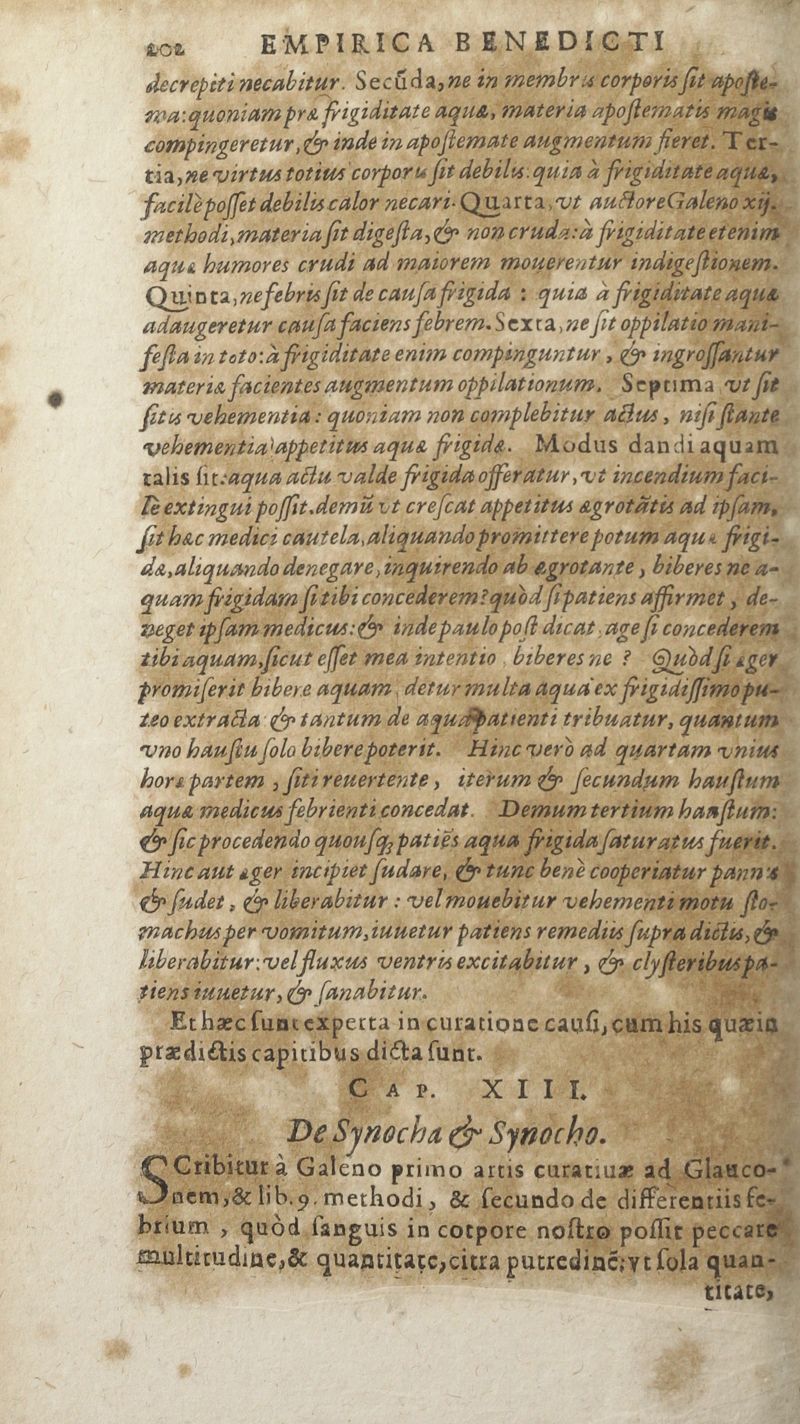 202 EMPIRICA BENEDICTI
decrepiti necabitur. Secũda, ne in membris corporis ſit apoſte-
ma: quoniam præ frigiditate aquæ, materia apoſtematis magis
compingeretur, & inde in apoſtemate augmentum fieret. Ter-
tia, ne virtus totius corporis ſit debilis: quia à frigiditate aquæ,
facilè poſſet debilis calor necari. Quarta, vt auctore Galeno xij.
methodi, materia ſit digeſta, & non cruda: à frigiditate etenim
aquæ humores crudi ad maiorem mouerentur indigeſtionem.
Quinta, ne febris ſit de cauſa frigida : quia à frigiditate aquæ
adaugeretur cauſa faciens febrem. Sexta, ne ſit oppilatio mani-
feſta in toto: à frigiditate enim compinguntur , & ingroſſantur
materiæ facientes augmentum oppilationum. Septima vt ſit
ſitis vehementia : quoniam non complebitur actus , niſi ſtante
vehementia appetitus aquæ frigidæ. Modus dandi aquam
talis ſit: aqua actu valde frigida offeratur, vt incendium faci-
lè extingui poſſit. demũ vt creſcat appetitus ægrotãtis ad ipſam,
ſit hæc medici cautela, aliquando promittere potum aquæ frigi-
dæ, aliquando denegare, inquirendo ab ægrotante , biberes ne a-
quam frigidam ſi tibi concederem? quòd ſi patiens affirmet , de-
neget ipſam medicus: & inde paulo poſt dicat, age ſi concederem
tibi aquam, ſicut eſſet mea intentio , biberes ne ? Quòd ſi æger
promiſerit bibere aquam, detur multa aqua ex frigidiſſimo pu-
teo extracta & tantum de aqua patienti tribuatur, quantum
vno hauſtu ſolo bibere poterit. Hinc verò ad quartam vnius
horæ partem , ſiti reuertente , iterum & ſecundum hauſtum
aquæ medicus febrienti concedat. Demum tertium hauſtum:
& ſic procedendo quouſq; patiẽs aqua frigida ſaturatus fuerit.
Hinc aut æger incipiet ſudare, & tunc benè cooperiatur pannis
& ſudet , & liberabitur : vel mouebitur vehementi motu ſto-
machus per vomitum, iuuetur patiens remediis ſupra dictis, &
liberabitur: vel fluxus ventris excitabitur , & clyſteribus pa-
tiens iuuetur, & ſanabitur.
Et hæc ſunt experta in curatione cauſi, cum his quæ in
prædictis capitibus dicta ſunt.
CAP. XIII.
De Synocha & Synocho.
SCribitur à Galeno primo artis curatiuæ ad Glauco-
nem, & lib. 9. methodi , & ſecundo de differentiis fe-
brium , quòd ſanguis in cotpore noſtro poſſit peccare
multitudine, & quantitate, citra putredinẽ: vt ſola quan-
titate,